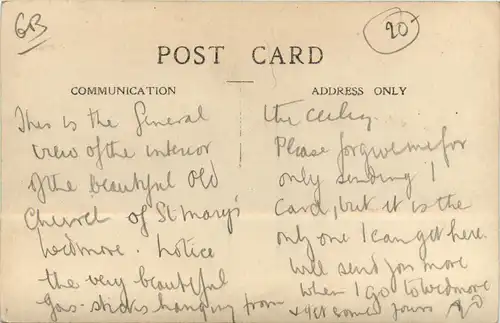 6B
20
POST CARD
COMMUNICATION
ADDRESS ONLY
This is the General
view of the interior
of the beautiful old
Church of St Mary's
Wedmore. Notice
the very beautiful
gas-sticks hanging from
the ceiling.
Please forgive me for
only sending 1
Card, but it is the
only one I can get here.
Will send you more
when I go to Wedmore
& get some. Yours